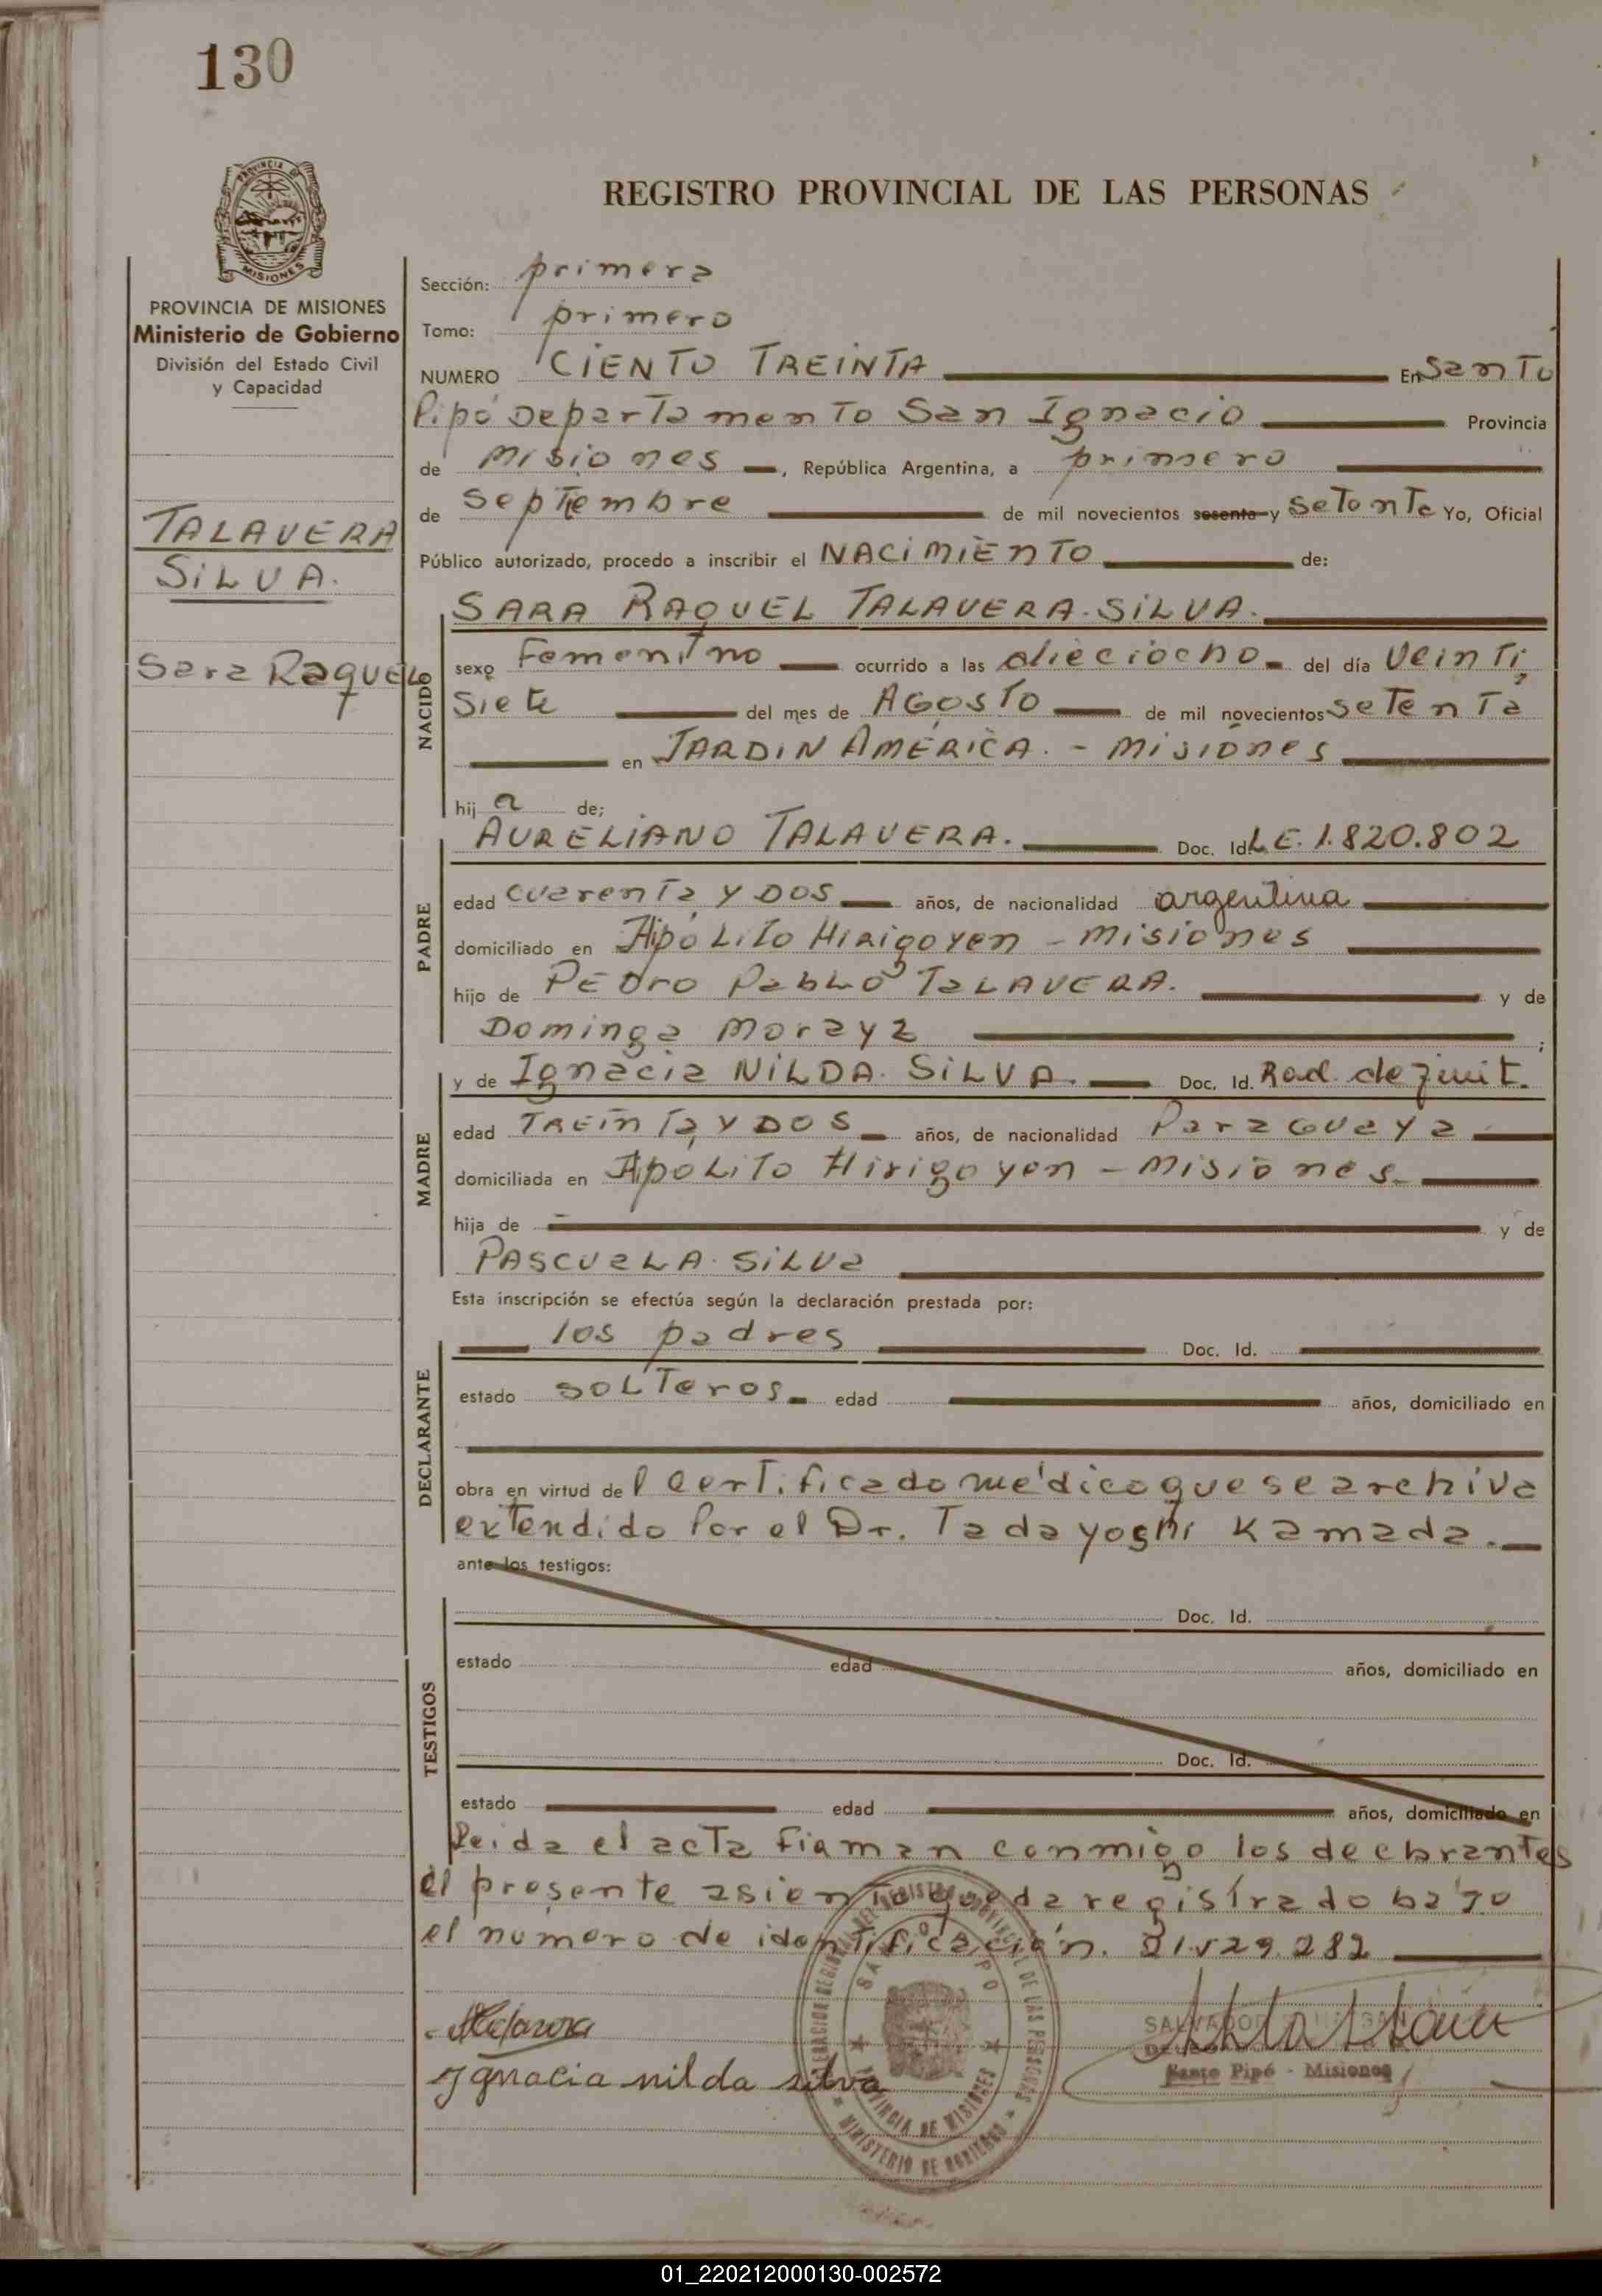 130
PROVINCIA
MISIONES
PROVINCIA DE MISIONES
Ministerio de Gobierno
División del Estado Civil
y Capacidad
TALAVERA
SILVA.
Sara Raquel
REGISTRO PROVINCIAL DE LAS PERSONAS
Sección: primera
Tomo: primero
NUMERO CIENTO TREINTA En Santo
Pipó Departamento San Ignacio Provincia
de Misiones, República Argentina, a primero
de Septiembre de mil novecientos sesenta y setenta Yo, Oficial
Público autorizado, procedo a inscribir el NACIMIENTO de:
SARA RAQUEL TALAVERA. SILVA.
NACIDO
sexo Femenino ocurrido a las dieciocho del día Veinti
Siete del mes de AGOSTO de mil novecientos setenta
en JARDIN AMÉRICA. - Misiones
hija de;
PADRE
AURELIANO TALAVERA. Doc. Id. L.E. 1.820.802
edad cuarenta y DOS años, de nacionalidad argentina
domiciliado en Hipólito Hirigoyen - Misiones
hijo de PEDRO Pablo TALAVERA. y de
Dominga Moraya ;
MADRE
y de Ignacia NILDA. SILVA. Doc. Id. Rad. definit.
edad TREINTA Y DOS años, de nacionalidad Paraguaya
domiciliada en Hipólito Hirigoyen - Misiones
hija de y de
PASCUALA. SILVA
Esta inscripción se efectúa según la declaración prestada por:
DECLARANTE
los padres Doc. Id.
estado solteros edad años, domiciliado en
obra en virtud del certificado médico que se archiva
extendido Por el Dr. Tadayoshi Kamada.
ante los testigos:
TESTIGOS
Doc. Id.
estado edad años, domiciliado en
Doc. Id.
estado edad años, domiciliado en
Leida el acta firman conmigo los declarantes
el presente asiento queda registrado bajo
el número de identificación. 21.529.282
Ignacia nilda silva
PROVINCIA DE MISIONES
MINISTERIO DE GOBIERNO
SALVADOR
Santo Pipó - Misiones
01_220212000130-002572